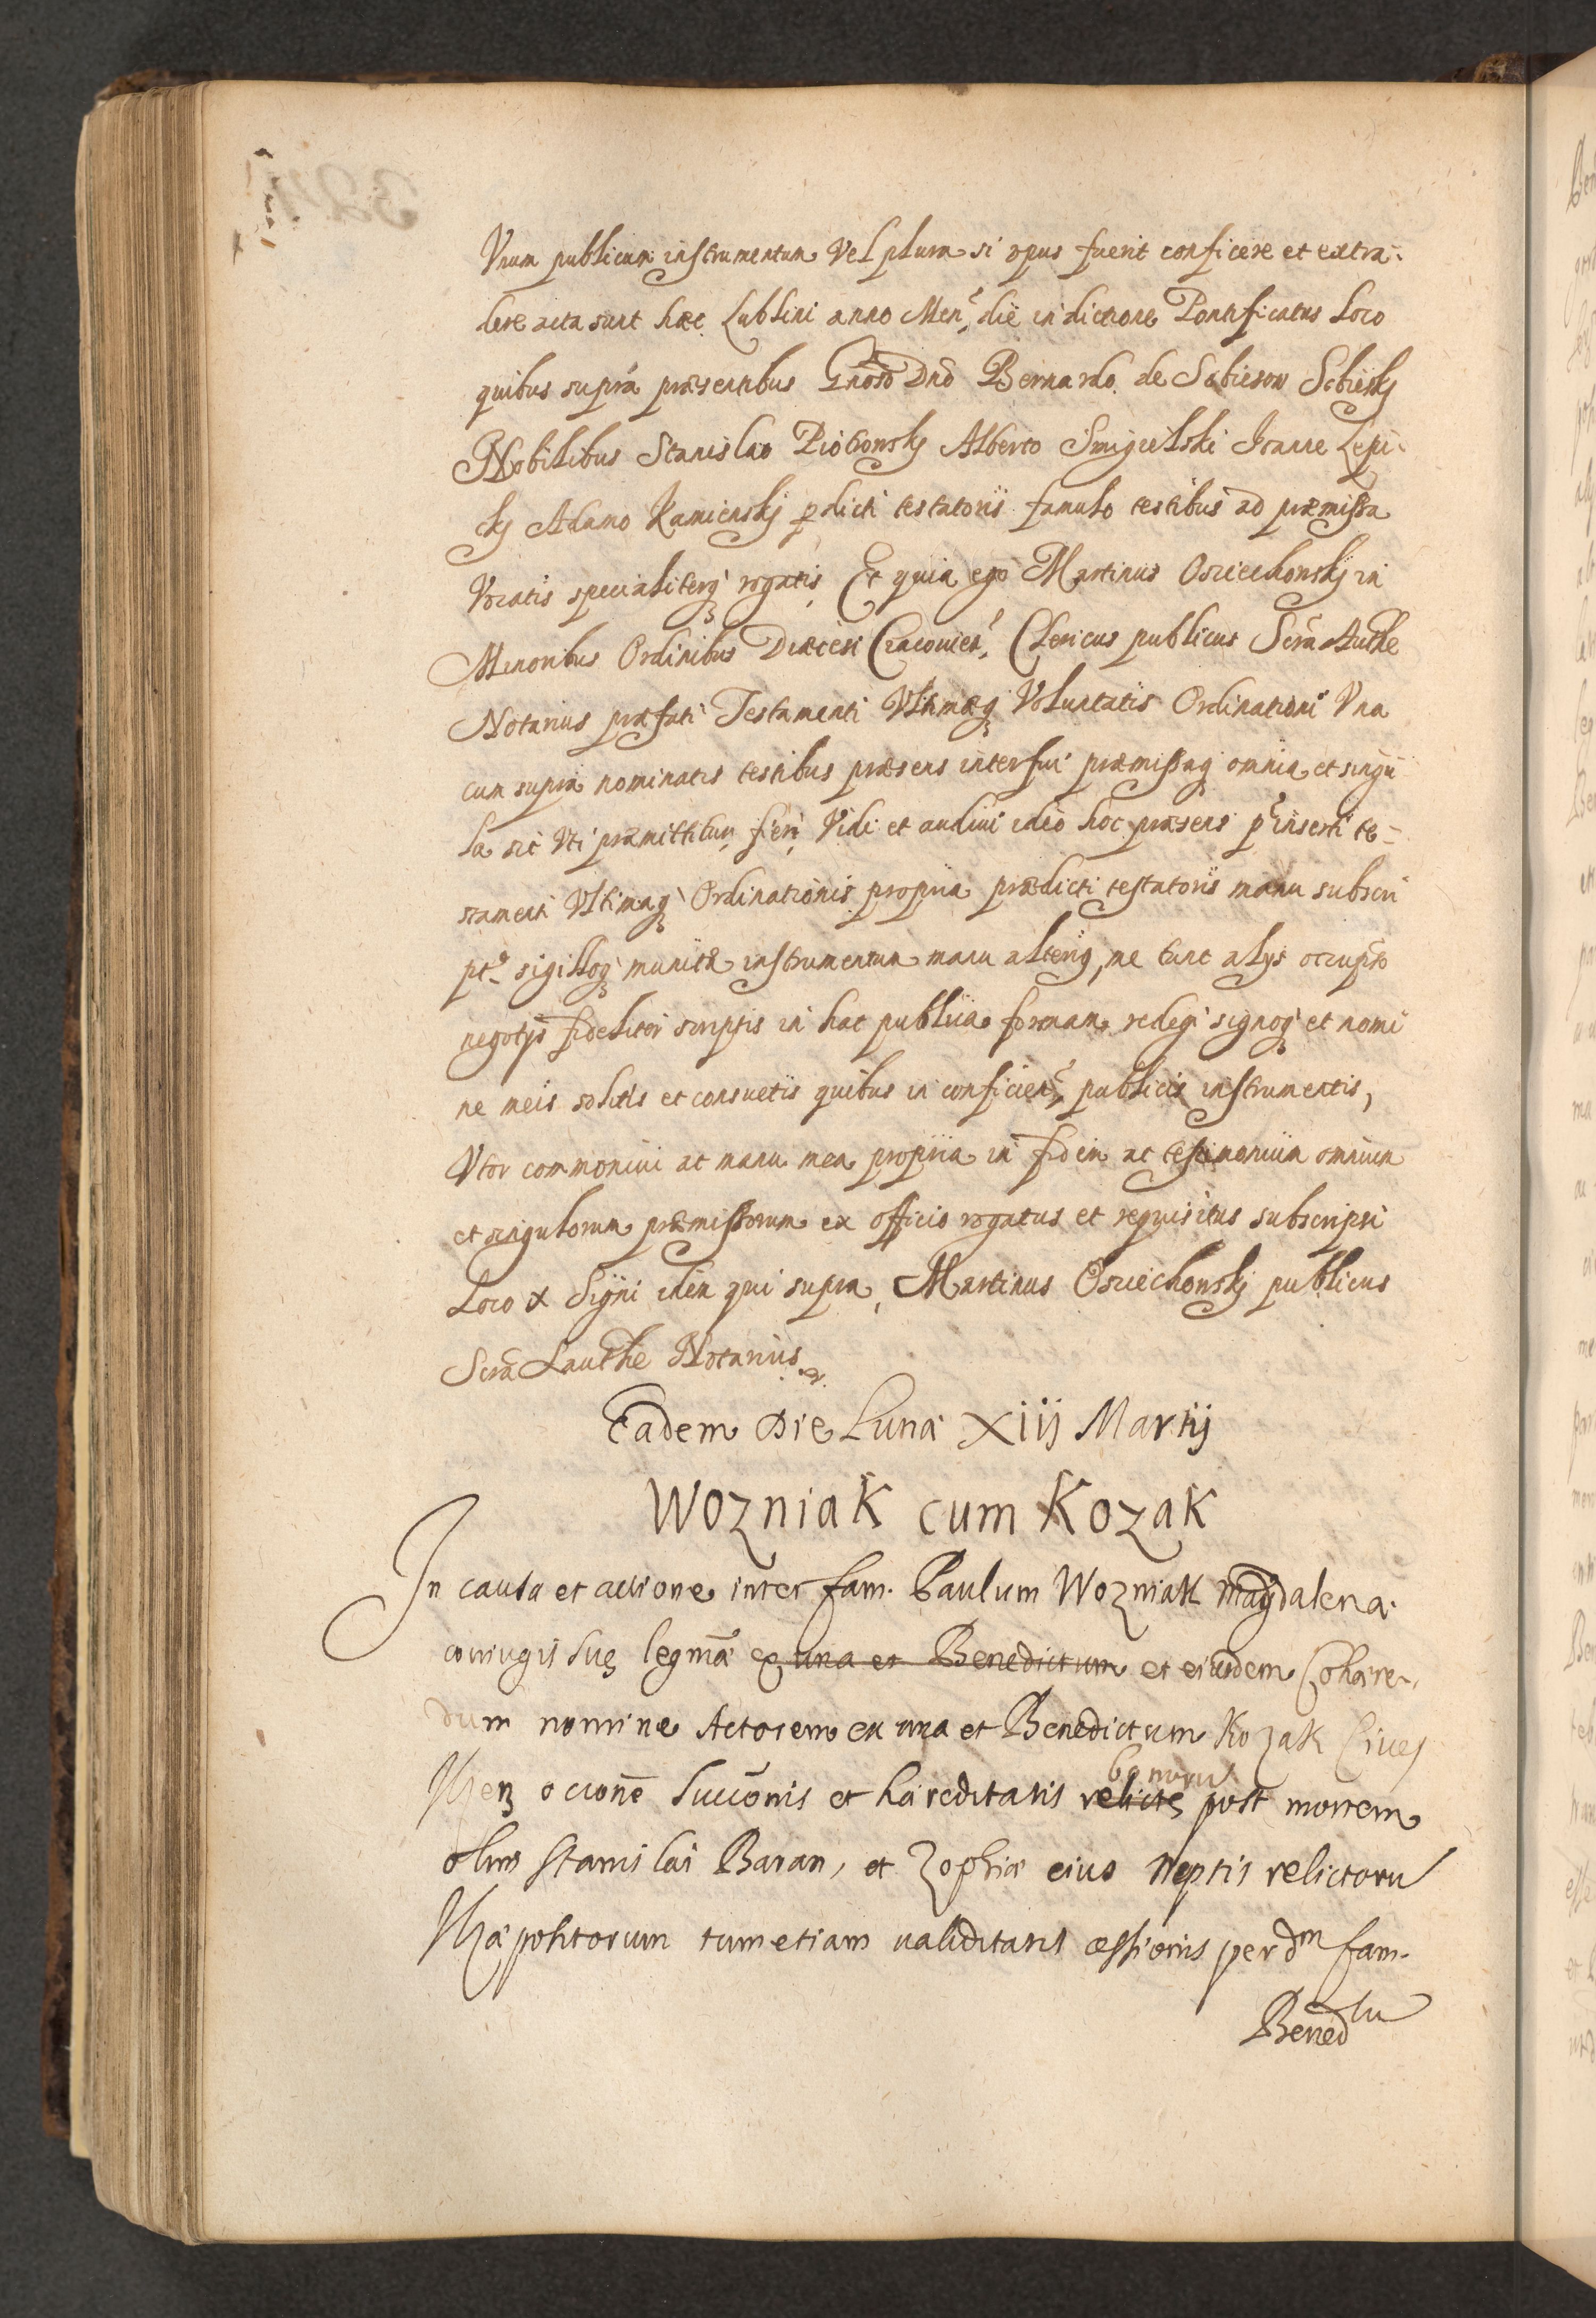 Vnum publicum instrumentum Vel plura si opus fuerit conficere et extra-
dere acta sunt hæc Lublini anno Men: die indictione Pontificatus Loco
quibus supra præsentibus Gnoso Dno Bernardo de Sobieson Sobiesky
Nobilibus Stanislao Piotrowsky Alberto Smigielski Joanne Lepi-
cky Adamo Kamiensky pdicti testatoris famulo testibus ad præmissa
Vocatis specialiterq rogatis Et quia ego Martinus Osciechowsky in
Minoribus Ordinibus Diœcesi Cracovien: Clericus publicus Scra Authe
Notarius præfati Testamenti Vltimæq Voluntatis Ordinationi Vna
cum supra nominatis testibus præsens interfui præmissaq omnia et singu
la sic Vti præmittitur, fieri, Vidi et audivi ideo hoc præsens p inserti te-
stamenti Vltimaq Ordinationis propria prædicti testatoris manu subscri
pto sigilloq munitu instrumentum manu alteriq, me tunc alys occupato
negotys fideliter scriptis in hac publica formam redegi signoq et nomi
ne meis solitis et consuetis quibus in conficien: publicis instrumentis,
Vtor communivi ac manu mea propria in fidem ac testimonium omnium
et singulorum præmissorum ex officio rogatus et requisitus subscripsi
Loco X Signi idem qui supra, Martinus Osciechowsky publicus
Scra Lauthe Notarius
Eadem Die Lunæ Xiij Martij
Wozniak cum Kozak
In causa et actione inter fam. Paulum Wozniak Magdalena
coniugis suę legmæ ex una et Benedictum et eiusdem Cohære-
dum nomine Actorem ex una et Benedictum Kozak Cives
occione succonis et hæreditatis relictę bonoru post mortem
olim Stanislai Baran, et Zophiæ eius neptis relictoru
tum etiam validitatis cessionis per dm fam.
Bened tu